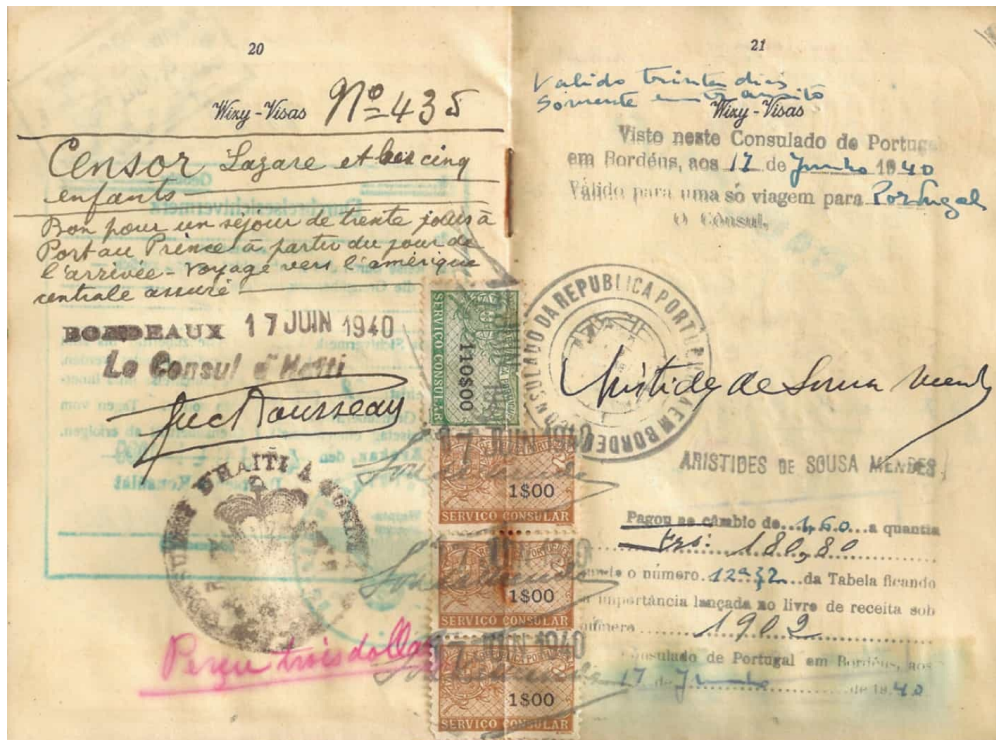 20
Wizy - Visas Nº 435
Censor Lazare et les cinq
enfants
Bon pour un séjour de trente jours à
Port au Prince à partir du jour de
l'arrivée - voyage vers l'amérique
centrale assuré
BORDEAUX 17 JUIN 1940
Le Consul d'Haiti
CONSULAT D'HAITI A
Perçu trois dollars
SERVIÇO CONSULAR
110$00
SERVIÇO CONSULAR
17 JUN 1940
1$00
SERVIÇO CONSULAR
17 JUN 1940
1$00
SERVIÇO CONSULAR
17 JUN 1940
1$00
SERVIÇO CONSULAR
21
Valido trinta dias
Somente em transito
Wizy - Visas
Visto neste Consulado de Portugal
em Bordéus, aos 17 de Junho 1940
Válido para uma só viagem para Portugal
O Consul,
CONSULADO DA REPUBLICA PORTUGUESA EM BORDEUS
Aristides de Sousa Mendes
ARISTIDES DE SOUSA MENDES
Pagou ao câmbio de 4.60 a quantia
180,80
o número 12 da Tabela ficando
a importância lançada no livro de receita sob
número 1902
Consulado de Portugal em Bordéus, aos
17 de Junho de 1940